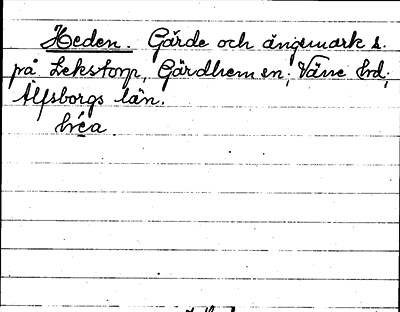 Heden. Gärde och ängsmark s.
på Lekstorp, Gärdhem sn; Väne hd;
Älfsborgs län.